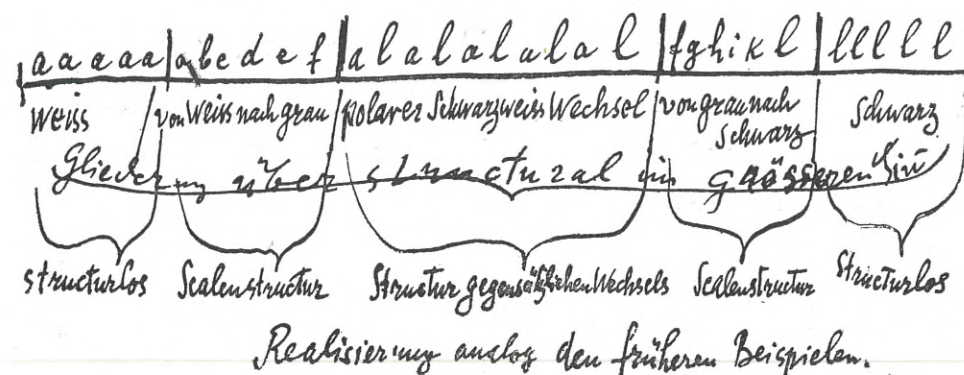 a a a a a | a b c d e f | a l a l a l a l a l | f g h i k l | l l l l l
weiss von Weiss nach grau polarer Schwarzweiss Wechsel von grau nach Schwarz Schwarz
Gliederung über structural im grösseren Sinn
structurlos Scalenstructur Structur gegensätzlichen Wechsels Scalenstructur Structurlos
Realisierung analog den früheren Beispielen.